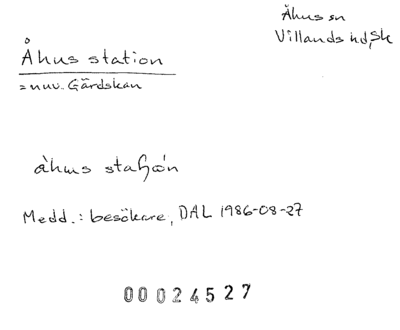 Åhus sn
Villands hd, Sk
Åhus station
= nuv. Gärdskan
åhus
Medd.: besökare, DAL 1986-08-27
00024527